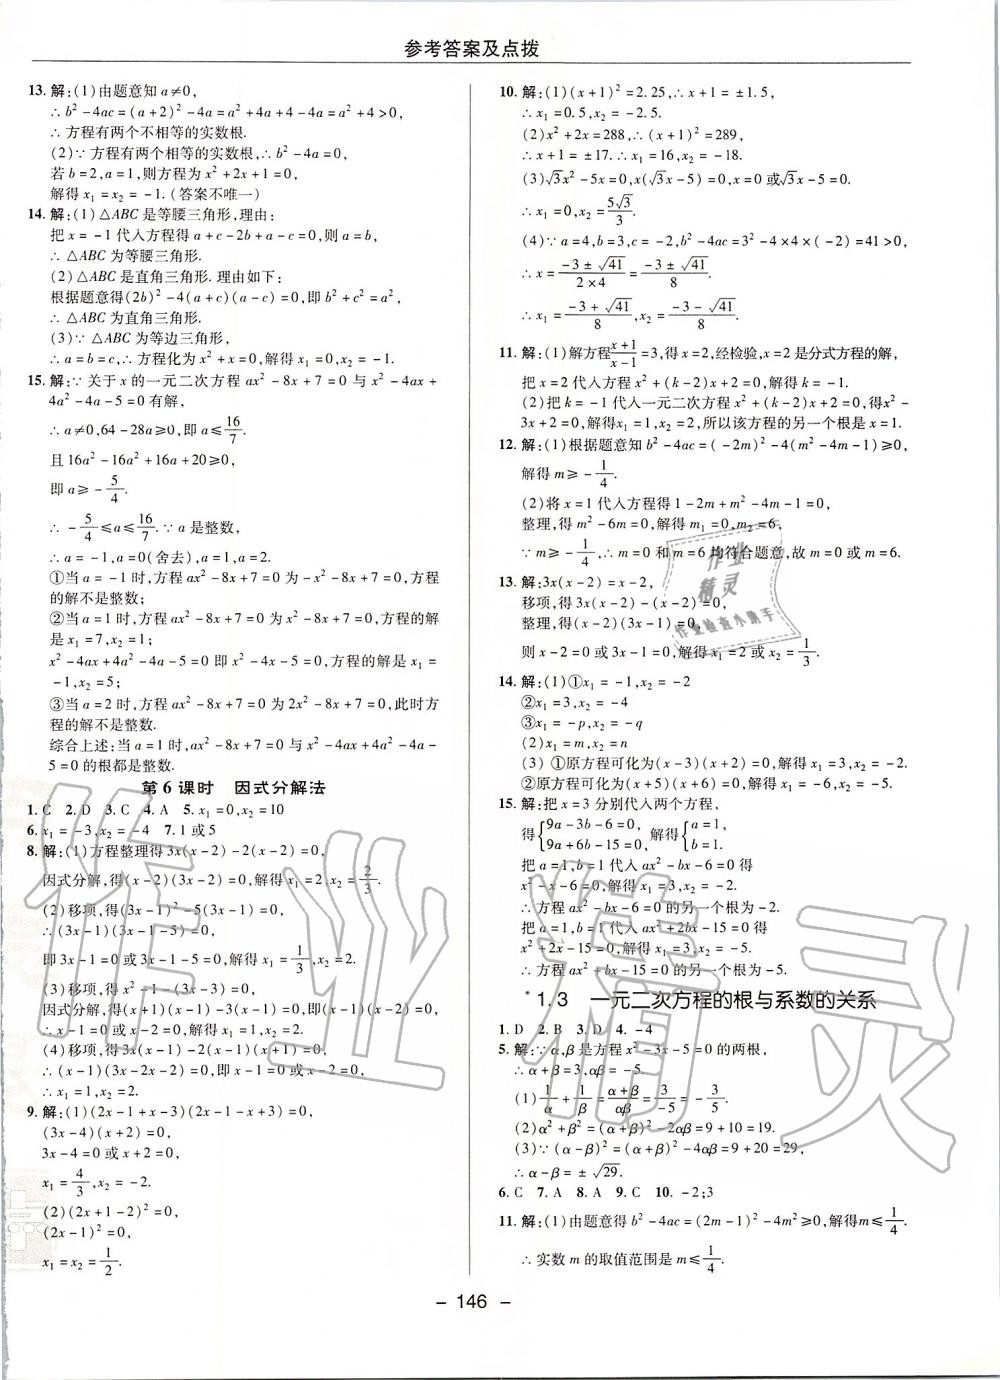 参考答案及点拨
13. 解:(1)由题意知 a≠0,
∴ b²-4ac=(a+2)²-4a=a²+4a+4-4a=a²+4>0,
∴ 方程有两个不相等的实数根.
(2)∵ 方程有两个相等的实数根,∴ b²-4a=0,
若 b=2,a=1,则方程为 x²+2x+1=0,
解得 x₁=x₂=-1.(答案不唯一)
14. 解:(1)△ABC 是等腰三角形,理由:
把 x=-1 代入方程得 a+c-2b+a-c=0,则 a=b,
∴ △ABC 为等腰三角形.
(2)△ABC 是直角三角形. 理由如下:
根据题意得(2b)²-4(a+c)(a-c)=0,即 b²+c²=a²,
∴ △ABC 为直角三角形.
(3)∵ △ABC 为等边三角形,
∴ a=b=c,∴ 方程化为 x²+x=0,解得 x₁=0,x₂=-1.
15. 解:∵ 关于 x 的一元二次方程 ax²-8x+7=0 与 x²-4ax+
4a²-4a-5=0 有解,
∴ a≠0,64-28a≥0,即 a≤16/7.
且 16a²-16a²+16a+20≥0,
即 a≥-5/4.
∴ -5/4≤a≤16/7.∵ a 是整数,
∴ a=-1,a=0(舍去),a=1,a=2.
①当 a=-1 时,方程 ax²-8x+7=0 为-x²-8x+7=0,方程
的解不是整数;
②当 a=1 时,方程 ax²-8x+7=0 为 x²-8x+7=0,方程的解
是 x₁=7,x₂=1;
x²-4ax+4a²-4a-5=0 即 x²-4x-5=0,方程的解是 x₁=
-1,x₂=5;
③当 a=2 时,方程 ax²-8x+7=0 为 2x²-8x+7=0,此时方
程的解不是整数.
综合上述:当 a=1 时,ax²-8x+7=0 与 x²-4ax+4a²-4a-
5=0 的根都是整数.
第 6 课时 因式分解法
1. C 2. D 3. C 4. A 5. x₁=0,x₂=10
6. x₁=-3,x₂=-4 7. 1 或 5
8. 解:(1)方程整理得 3x(x-2)-2(x-2)=0,
因式分解,得(x-2)(3x-2)=0,解得 x₁=2,x₂=2/3.
(2)移项,得(3x-1)²-5(3x-1)=0,
∴ (3x-1)(3x-1-5)=0,
即 3x-1=0 或 3x-1-5=0,解得 x₁=1/3,x₂=2.
(3)移项,得 x(x+1)-3(x+1)=0,
因式分解,得(x+1)(x-3)=0,即 x+1=0 或 x-3=0,解得
x₁=-1,x₂=3.
(4)移项,得 3x(x-1)-2(x-1)²=0,
∴ (x-1)(3x-2x+2)=0,即 x-1=0 或 x+2=0,
∴ x₁=1,x₂=-2.
9. 解:(1)(2x-1+x-3)(2x-1-x+3)=0,
(3x-4)(x+2)=0,
3x-4=0 或 x+2=0,
x₁=4/3,x₂=-2.
(2)(2x-1)²=0,
(2x-1)²=0,
x₁=x₂=1/2.
10. 解:(1)(x+1)²=2.25,∴ x+1=±1.5,
∴ x₁=0.5,x₂=-2.5.
(2)x²+2x=288,∴ (x+1)²=289,
∴ x+1=±17.∴ x₁=16,x₂=-18.
(3)√3x²-5x=0,x(√3x-5)=0,x=0 或√3x-5=0.
∴ x₁=0,x₂=5√3/3.
(4)∵ a=4,b=3,c=-2,b²-4ac=3²-4×4×(-2)=41>0,
∴ x=(-3±√41)/(2×4)=(-3±√41)/8.
∴ x₁=(-3+√41)/8,x₂=(-3-√41)/8.
11. 解:(1)解方程(x+1)/(x-1)=3,得 x=2,经检验,x=2 是分式方程的解,
把 x=2 代入方程 x²+(k-2)x+2=0,解得 k=-1.
(2)把 k=-1 代入一元二次方程 x²+(k-2)x+2=0,得x²-
3x+2=0,解得x₁=1,x₂=2,所以该方程的另一个根是 x=1.
12. 解:(1)根据题意知 b²-4ac=(-2m)²-4(m²-4m-1)≥0,
解得 m≥-1/4.
(2)将 x=1 代入方程得 1-2m+m²-4m-1=0,
整理,得 m²-6m=0,解得 m₁=0,m₂=6,
∵ m≥-1/4,∴ m=0 和 m=6 均符合题意,故 m=0 或 m=6.
13. 解:3x(x-2)=x-2,
移项,得 3x(x-2)-(x-2)=0,
整理,得(x-2)(3x-1)=0,
则 x-2=0 或 3x-1=0,解得 x₁=2 或 x₂=1/3.
14. 解:(1)①x₁=-1,x₂=-2
②x₁=3,x₂=-4
③x₁=-p,x₂=-q
(2)x₁=m,x₂=n
(3)①原方程可化为(x-6)(x+2)=0,解得 x₁=6,x₂=-2.
②原方程可化为(x+5)(x+6)=0,解得 x₁=-6,x₂=-5.
15. 解:把 x=3 分别代入两个方程,
得{9a-3b-6=0, 9a+6b-15=0, 解得{a=1, b=1.
把 a=1,b=1 代入 ax²-bx-6=0 得
x²-x-6=0,解得 x₁=3,x₂=-2,
∴ 方程 ax²-bx-6=0 的另一个根为-2.
把 a=1,b=1 代入 ax²+2bx-15=0 得
x²+2x-15=0,解得 x₁=3,x₂=-5,
∴ 方程 ax²+2bx-15=0 的另一个根为-5.
*1.3 一元二次方程的根与系数的关系
1. D 2. B 3. D 4. -4
5. 解:∵ α,β 是方程 x²-3x-5=0 的两根,
∴ α+β=3,αβ=-5.
(1)1/α+1/β=(α+β)/αβ=3/-5=-3/5.
(2)α²+β²=(α+β)²-2αβ=9+10=19.
(3)∵ (α-β)²=(α+β)²-4αβ=9+20=29,
∴ α-β=±√29.
6. C 7. A 8. A 9. C 10. -2;3
11. 解:(1)由题意得 b²-4ac=(2m-1)²-4m²≥0,解得m≤1/4.
∴ 实数 m 的取值范围是 m≤1/4.
- 146 -
作业精灵
作业
精灵
作业检查小助手